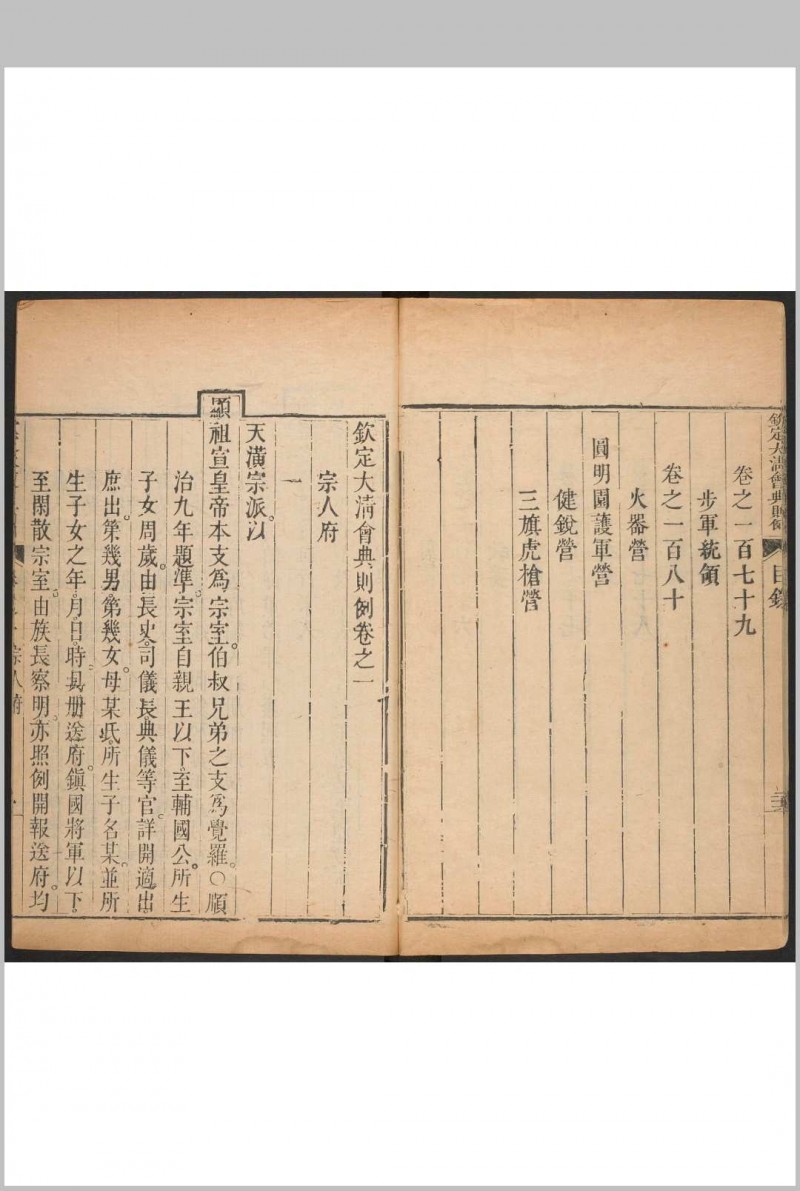 欽定大清會典則例
目錄
卷之一百七十九
步軍統領
卷之一百八十
火器營
圓明園護軍營
健銳營
三旗虎槍營
欽定大清會典則例卷之一
宗人府
一
天潢宗派。以
顯祖宣皇帝本支爲宗室。伯叔兄弟之支爲覺羅。○順
治九年題準。宗室自親王以下。至輔國公。所生
子女周歲。由長史司儀長典儀等官。詳開適出
庶出。第幾男。第幾女。母某氏。所生子名某。並所
生子女之年。月。日。時。具册送府。鎭國將軍以下。
至閑散宗室。由族長察明。亦照例開報送府。均
宗人府